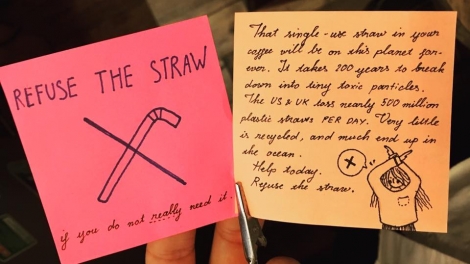 REFUSE THE STRAW
if you do not really need it.
That single-use straw in your
coffee will be on this planet for-
ever. It takes 200 years to break
down into tiny toxic particles.
The US & UK toss nearly 500 million
plastic straws PER DAY. Very little
is recycled, and much end up in
the ocean.
Help today.
Refuse the straw.